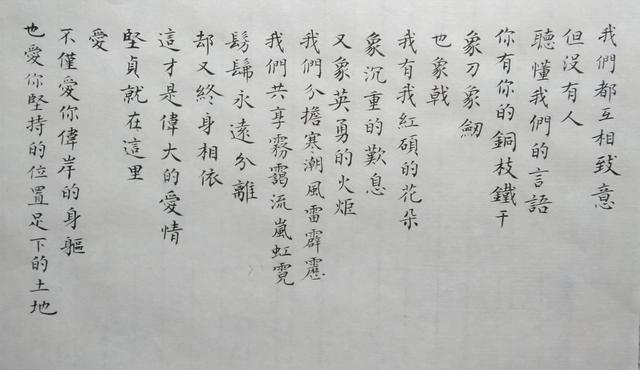 我們都互相致意
但沒有人
聽懂我們的言語
你有你的銅枝鐵干
象刀象劒
也象戟
我有我紅碩的花朵
象沉重的歎息
又象英勇的火炬
我們分擔寒潮風雷霹靂
我們共享霧靄流嵐虹霓
髣髴永遠分離
却又終身相依
這才是偉大的愛情
堅貞就在這里
愛
不僅愛你偉岸的身軀
也愛你堅持的位置足下的土地